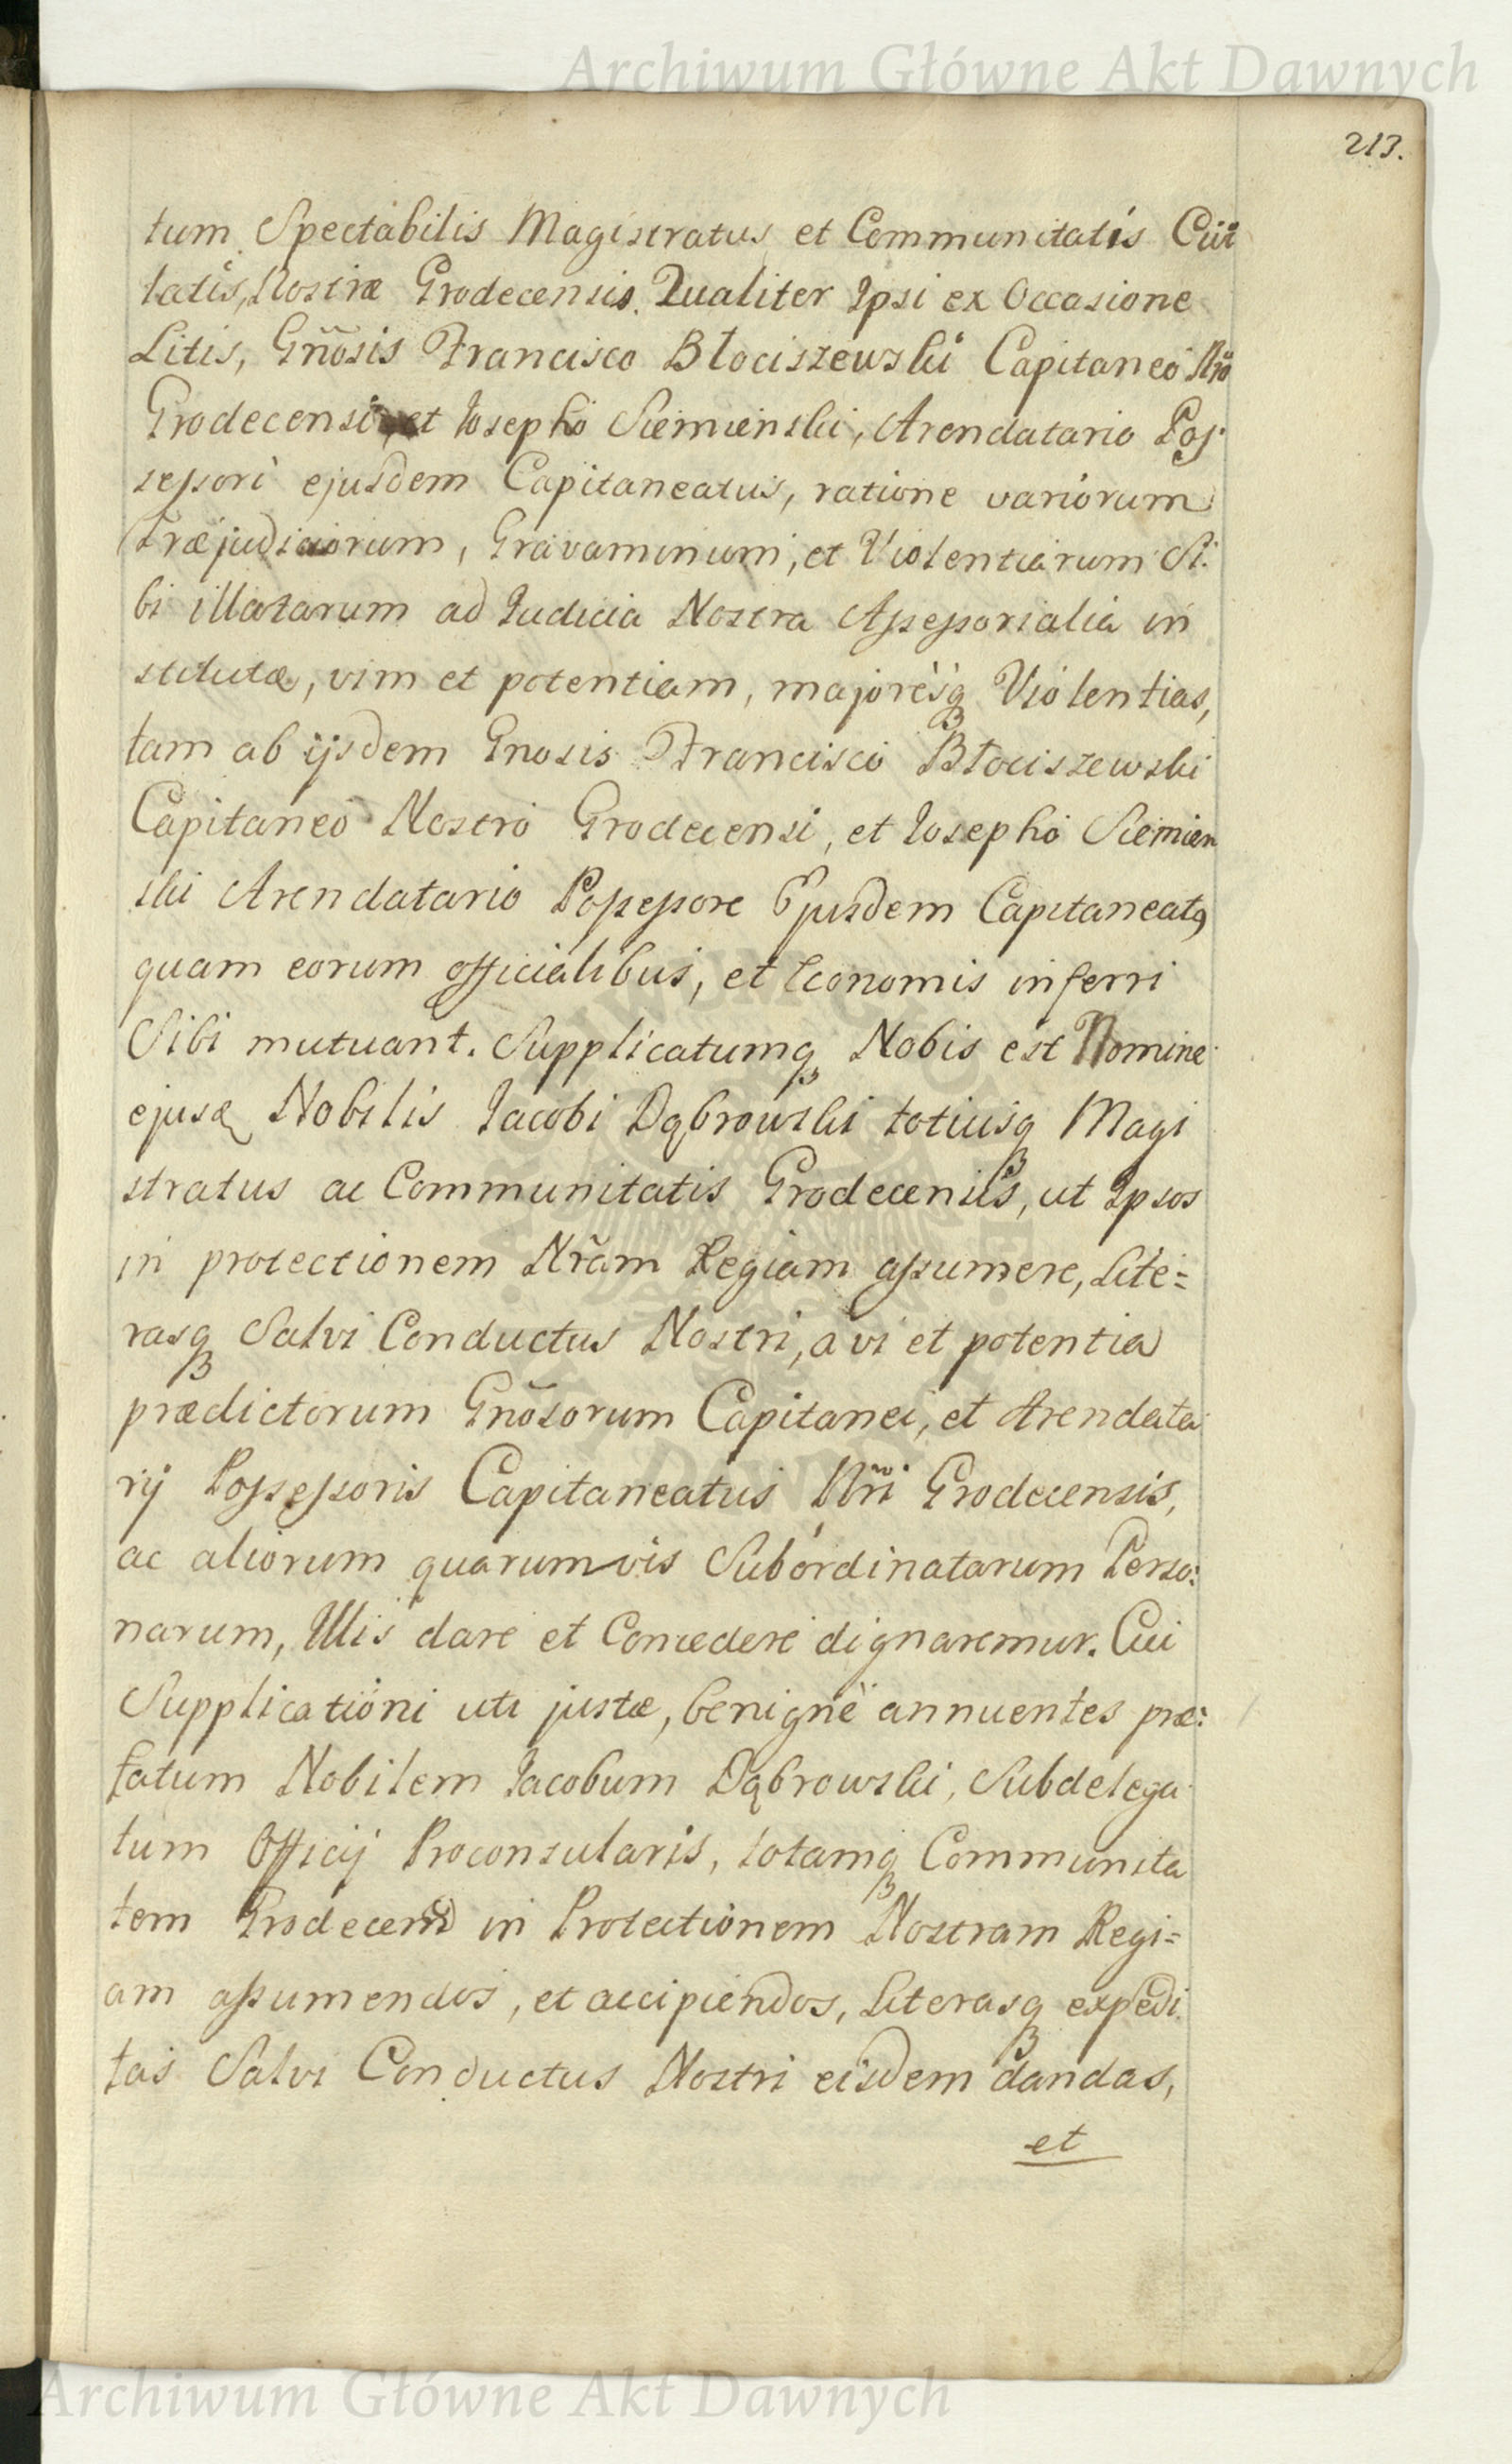 Archiwum Główne Akt Dawnych
213.
tum Spectabilis Magistratus et Communitatis Civi
tatis, Nostræ Grodecensis. Qualiter Ipsi ex Occasione
Litis, Gñosis Francisco Błociszewski Capitaneo Nro
Grodecensi, et Josepho Siemienski, Arendatario Pos
sessori ejusdem Capitaneatus, ratione variorum
Præjudiciorum, Gravaminum, et Violentiarum Si.
bi illatarum ad Judicia Nostra Assessorialia in
stitutæ, vim et potentiam, majoresq Violentias,
tam ab ijsdem Gnosis Francisco Błociszewski
Capitaneo Nostro Grodecensi, et Josepho Siemien
ski Arendatario Possessore Ejusdem Capitaneatq
quam eorum officialibus, et Œconomis inferri
Sibi mutuant. Supplicatumq Nobis est Nomine
ejusd Nobilis Jacobi Dąbrowski totiusq Magi
stratus ac Communitatis Grodecensis, ut Ipsos
in protectionem Nr̃am Regiam assumere, Lite=
rasq Salvi Conductus Nostri, a vi et potentia
prædictorum Gñosorum Capitanei, et Arendata
rij Possessoris Capitaneatus Nr̃i Grodecensis,
ac aliorum quarumvis Subordinatarum Perso:
narum, Illis dare et Concedere dignaremur. Cui
Supplicationi uti justæ, benignè annuentes præ:
fatum Nobilem Jacobum Dąbrowski, Subdelega
tum Officij Proconsularis, totamq Communita
tem Grodecens in Protectionem Nostram Regi=
am assumendos, et accipiendos, Literasq expedi
tas Salvi Conductus Nostri eisdem dandas,
et
Archiwum Główne Akt Dawnych